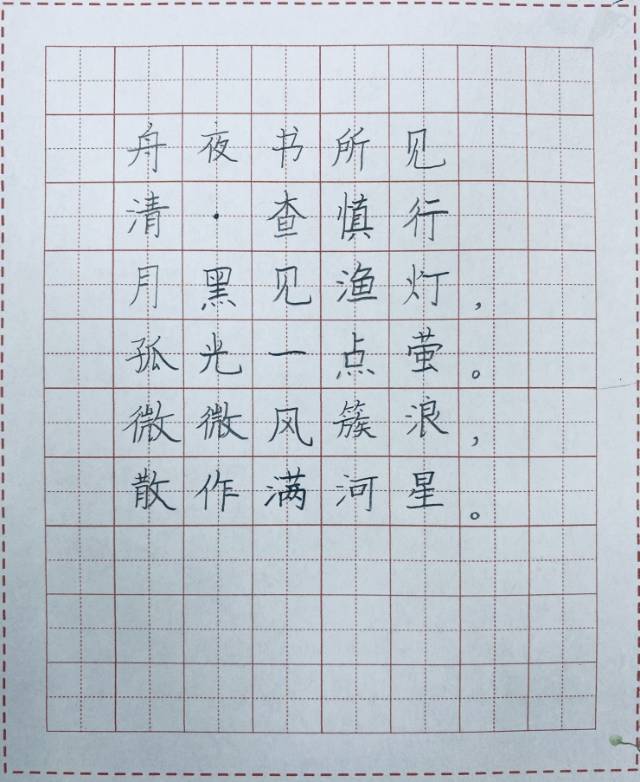 舟夜书所见
清·查慎行
月黑见渔灯，
孤光一点萤。
微微风簇浪，
散作满河星。